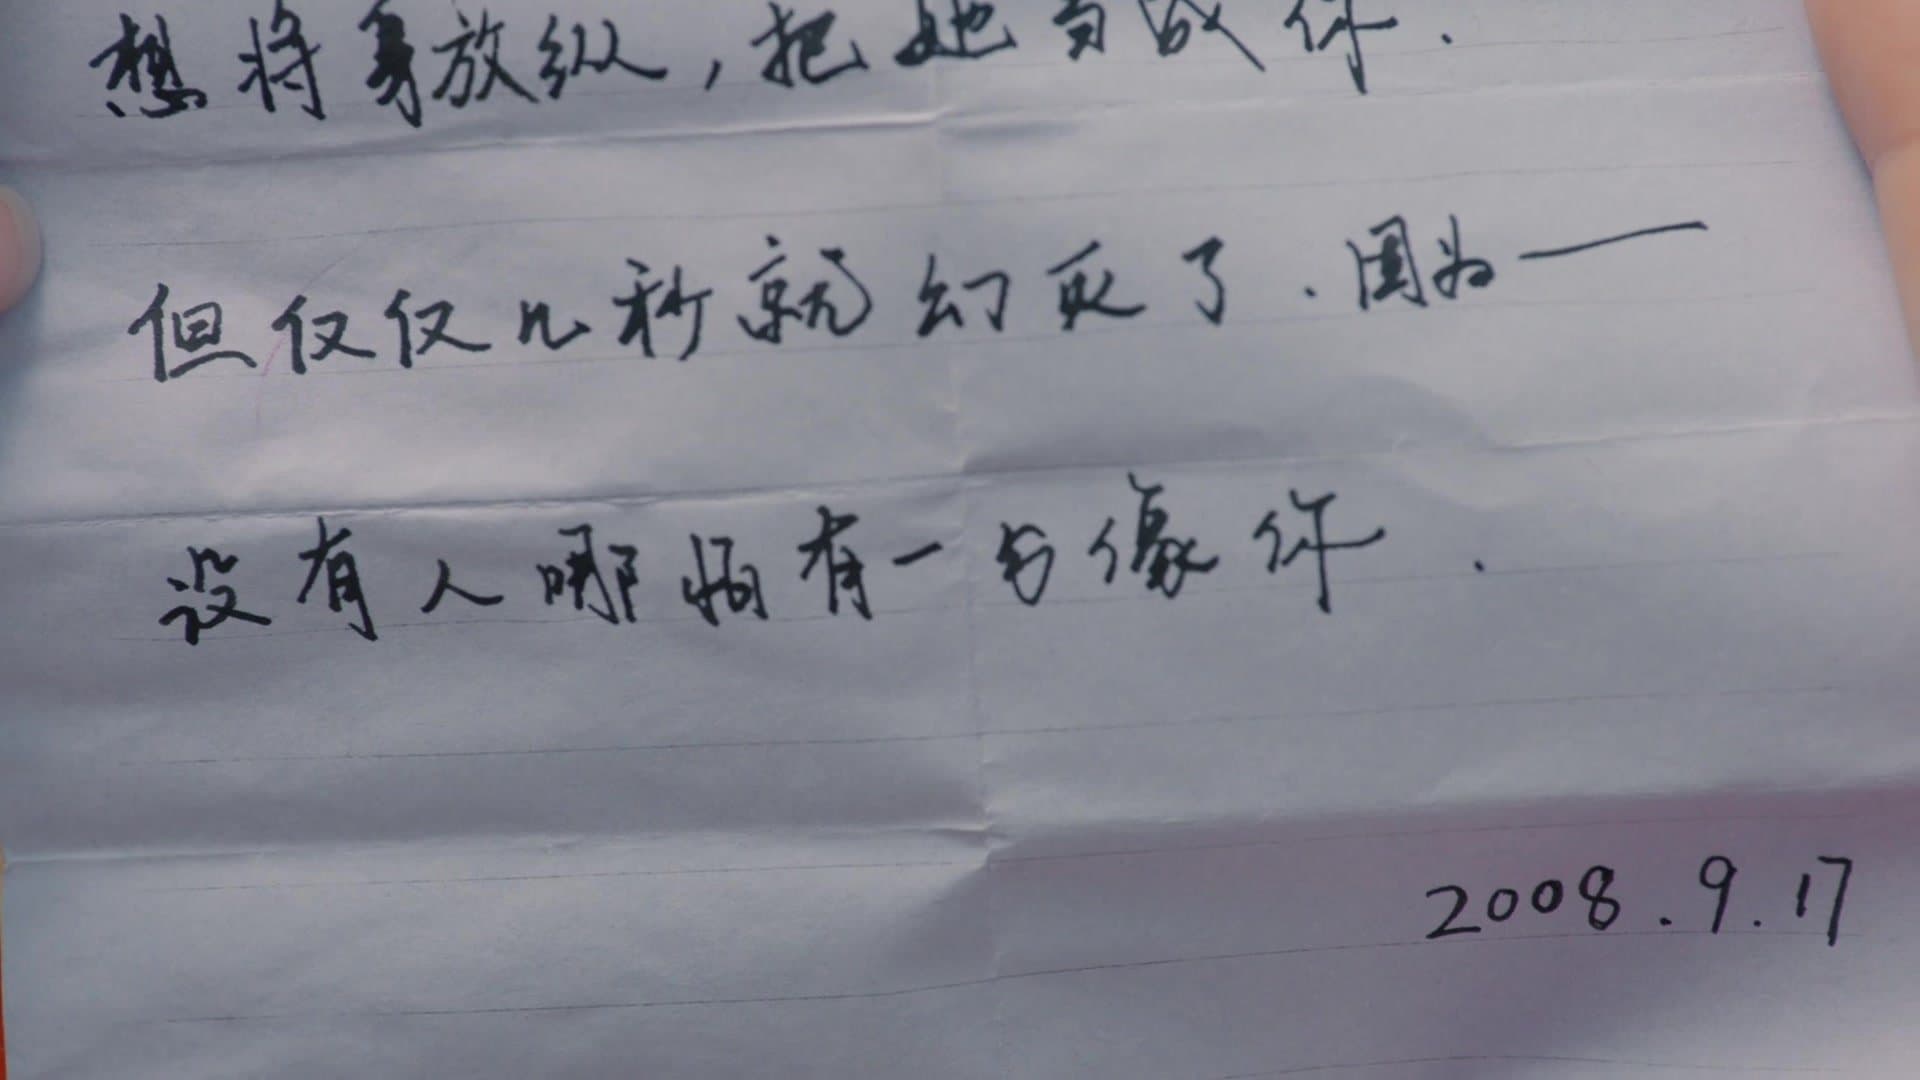 想将身放纵，把她当成你.
但仅仅几秒就幻灭了.因为——
没有人哪怕有一岁像你.
2008.9.17